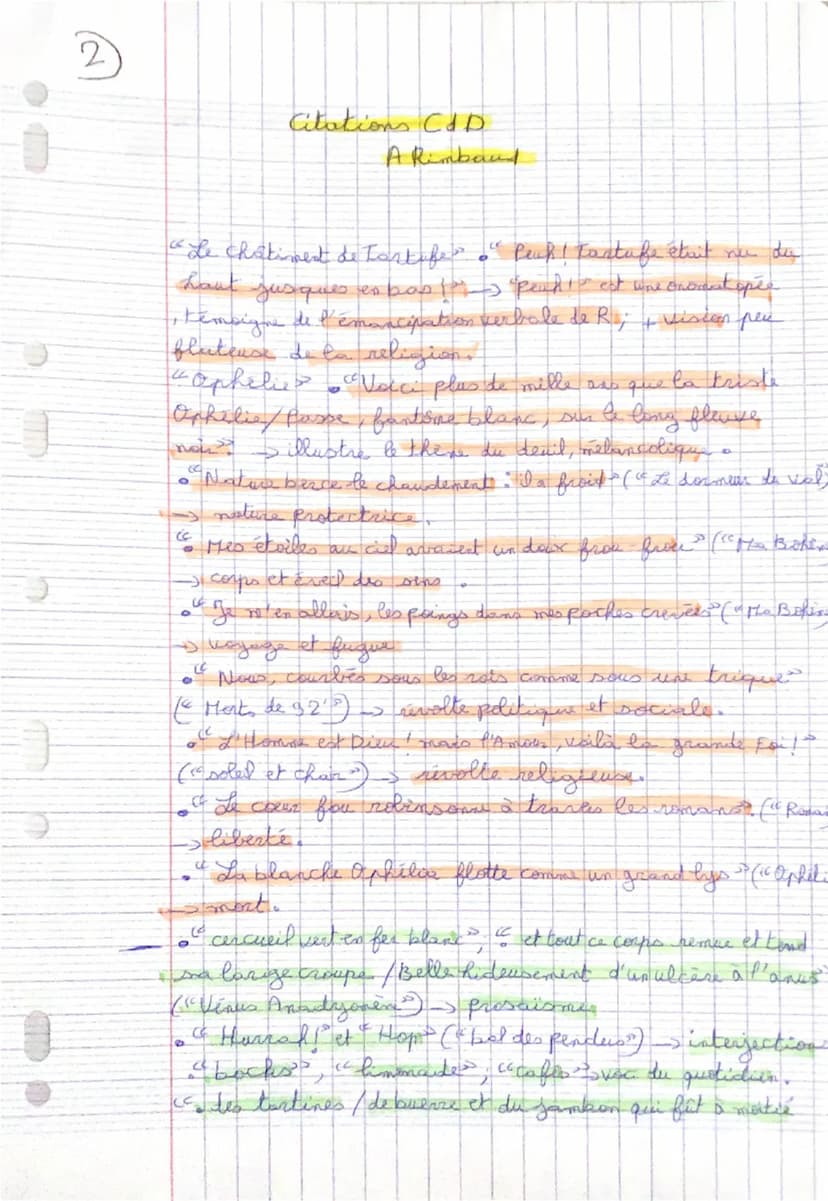 2)
Citations CdD
A Rimbaud
“Le châtiment de Tartufe” • “Peuh! Tartufe était nu du
haut jusques en bas!” → “peuh!” est une onomatopée
, témoigne de l'émancipation verbale de R; + vision peu
flateuse de la religion.
“Ophélie” • “Voici plus de mille ans que la triste
Ophélie/Passe, fantôme blanc, sur le long fleuve
noir” → illustre le thème du deuil, mélancolique.
• “Nature berce-le chaudement : il a froid” (“Le dormeur du val”)
→ nature protectrice.
“• Mes étoiles au ciel avaient un doux frou-frou” (“Ma Bohèm
→ corps et éveil des sens.
• “Je m'en allais, les poings dans mes poches crevées” (“Ma Bohèm
→ voyage et fugue
• “Nous, courbés sous les rois comme sous une trique”
(“Morts de 92”) → révolte politique et sociale.
• “L'Homme est Dieu! mais l'Amour, voilà la grande Foi!”
(“soleil et chair”) → révolte religieuse.
• “Le cœur fou robinsonne à travers les romans”. (“Roman
→ liberté.
• “La blanche Ophélia flotte comme un grand lys” (“Ophéli
→ mort.
• “cercueil vert en fer blanc”; “et tout ce corps remue et tend
sa large croupe / Belle hideusement d'un ulcère à l'anus”
(“Vénus Anadyomène”) → prosaïsme
• “Hurrah!” et “Hop” (“bal des pendus”) → interjection
“bocks”, “limonade”, “cafés” → voc du quotidien.
“• des tartines / de buerre et du jambon qui fût à moitié